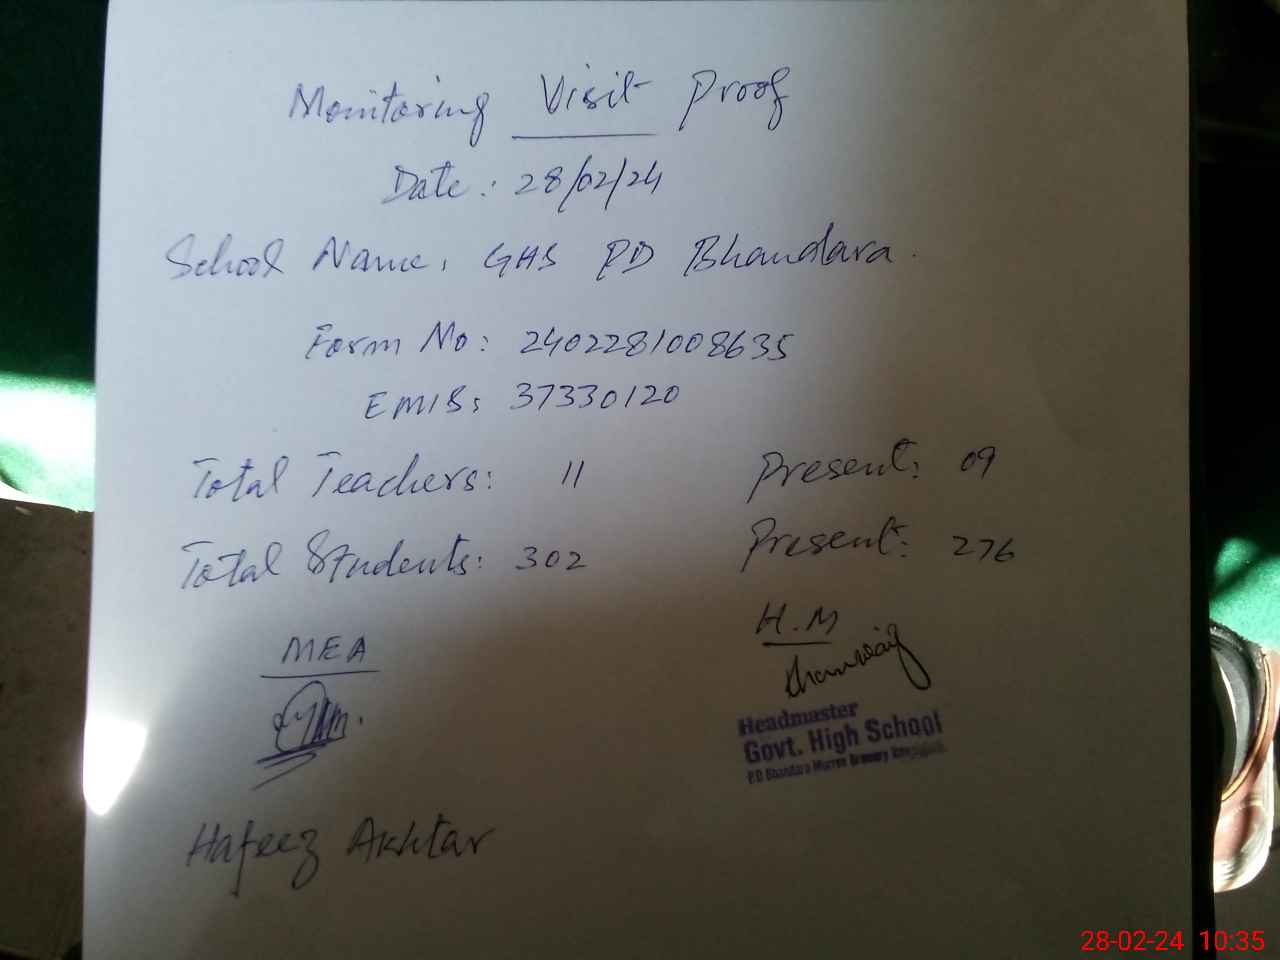 Monitoring Visit Proof
Date: 28/02/24
School Name: GHS PD Bhandara.
Form No: 2402281008635
EMIS: 37330120
Total Teachers: 11 Present: 09
Total Students: 302 Present: 276
MEA H.M
Headmaster
Govt. High School
P.D Bhandara Murree Brewery
Hafeez Akhtar
28-02-24 10:35